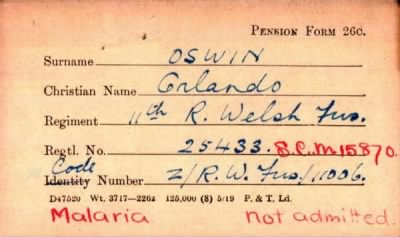 PENSION FORM 26C.
Surname OSWIN
Christian Name Orlando
Regiment 11th R. Welsh Fus.
Regtl. No. 25433. S.C.M.15870.
Code
Identity Number Z/R.W.Fus/11006.
D47520 Wt. 3717—2262 125,000 (8) 5/19 P. & T. Ld.
Malaria not admitted.